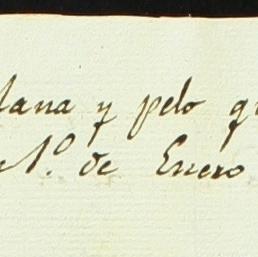 lana y pelo q
1º de Enero